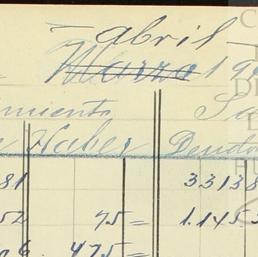 abril
Marzo 19
miento Sa
Haber Deudo
81 33138
52 75= 1.1453
06 475=